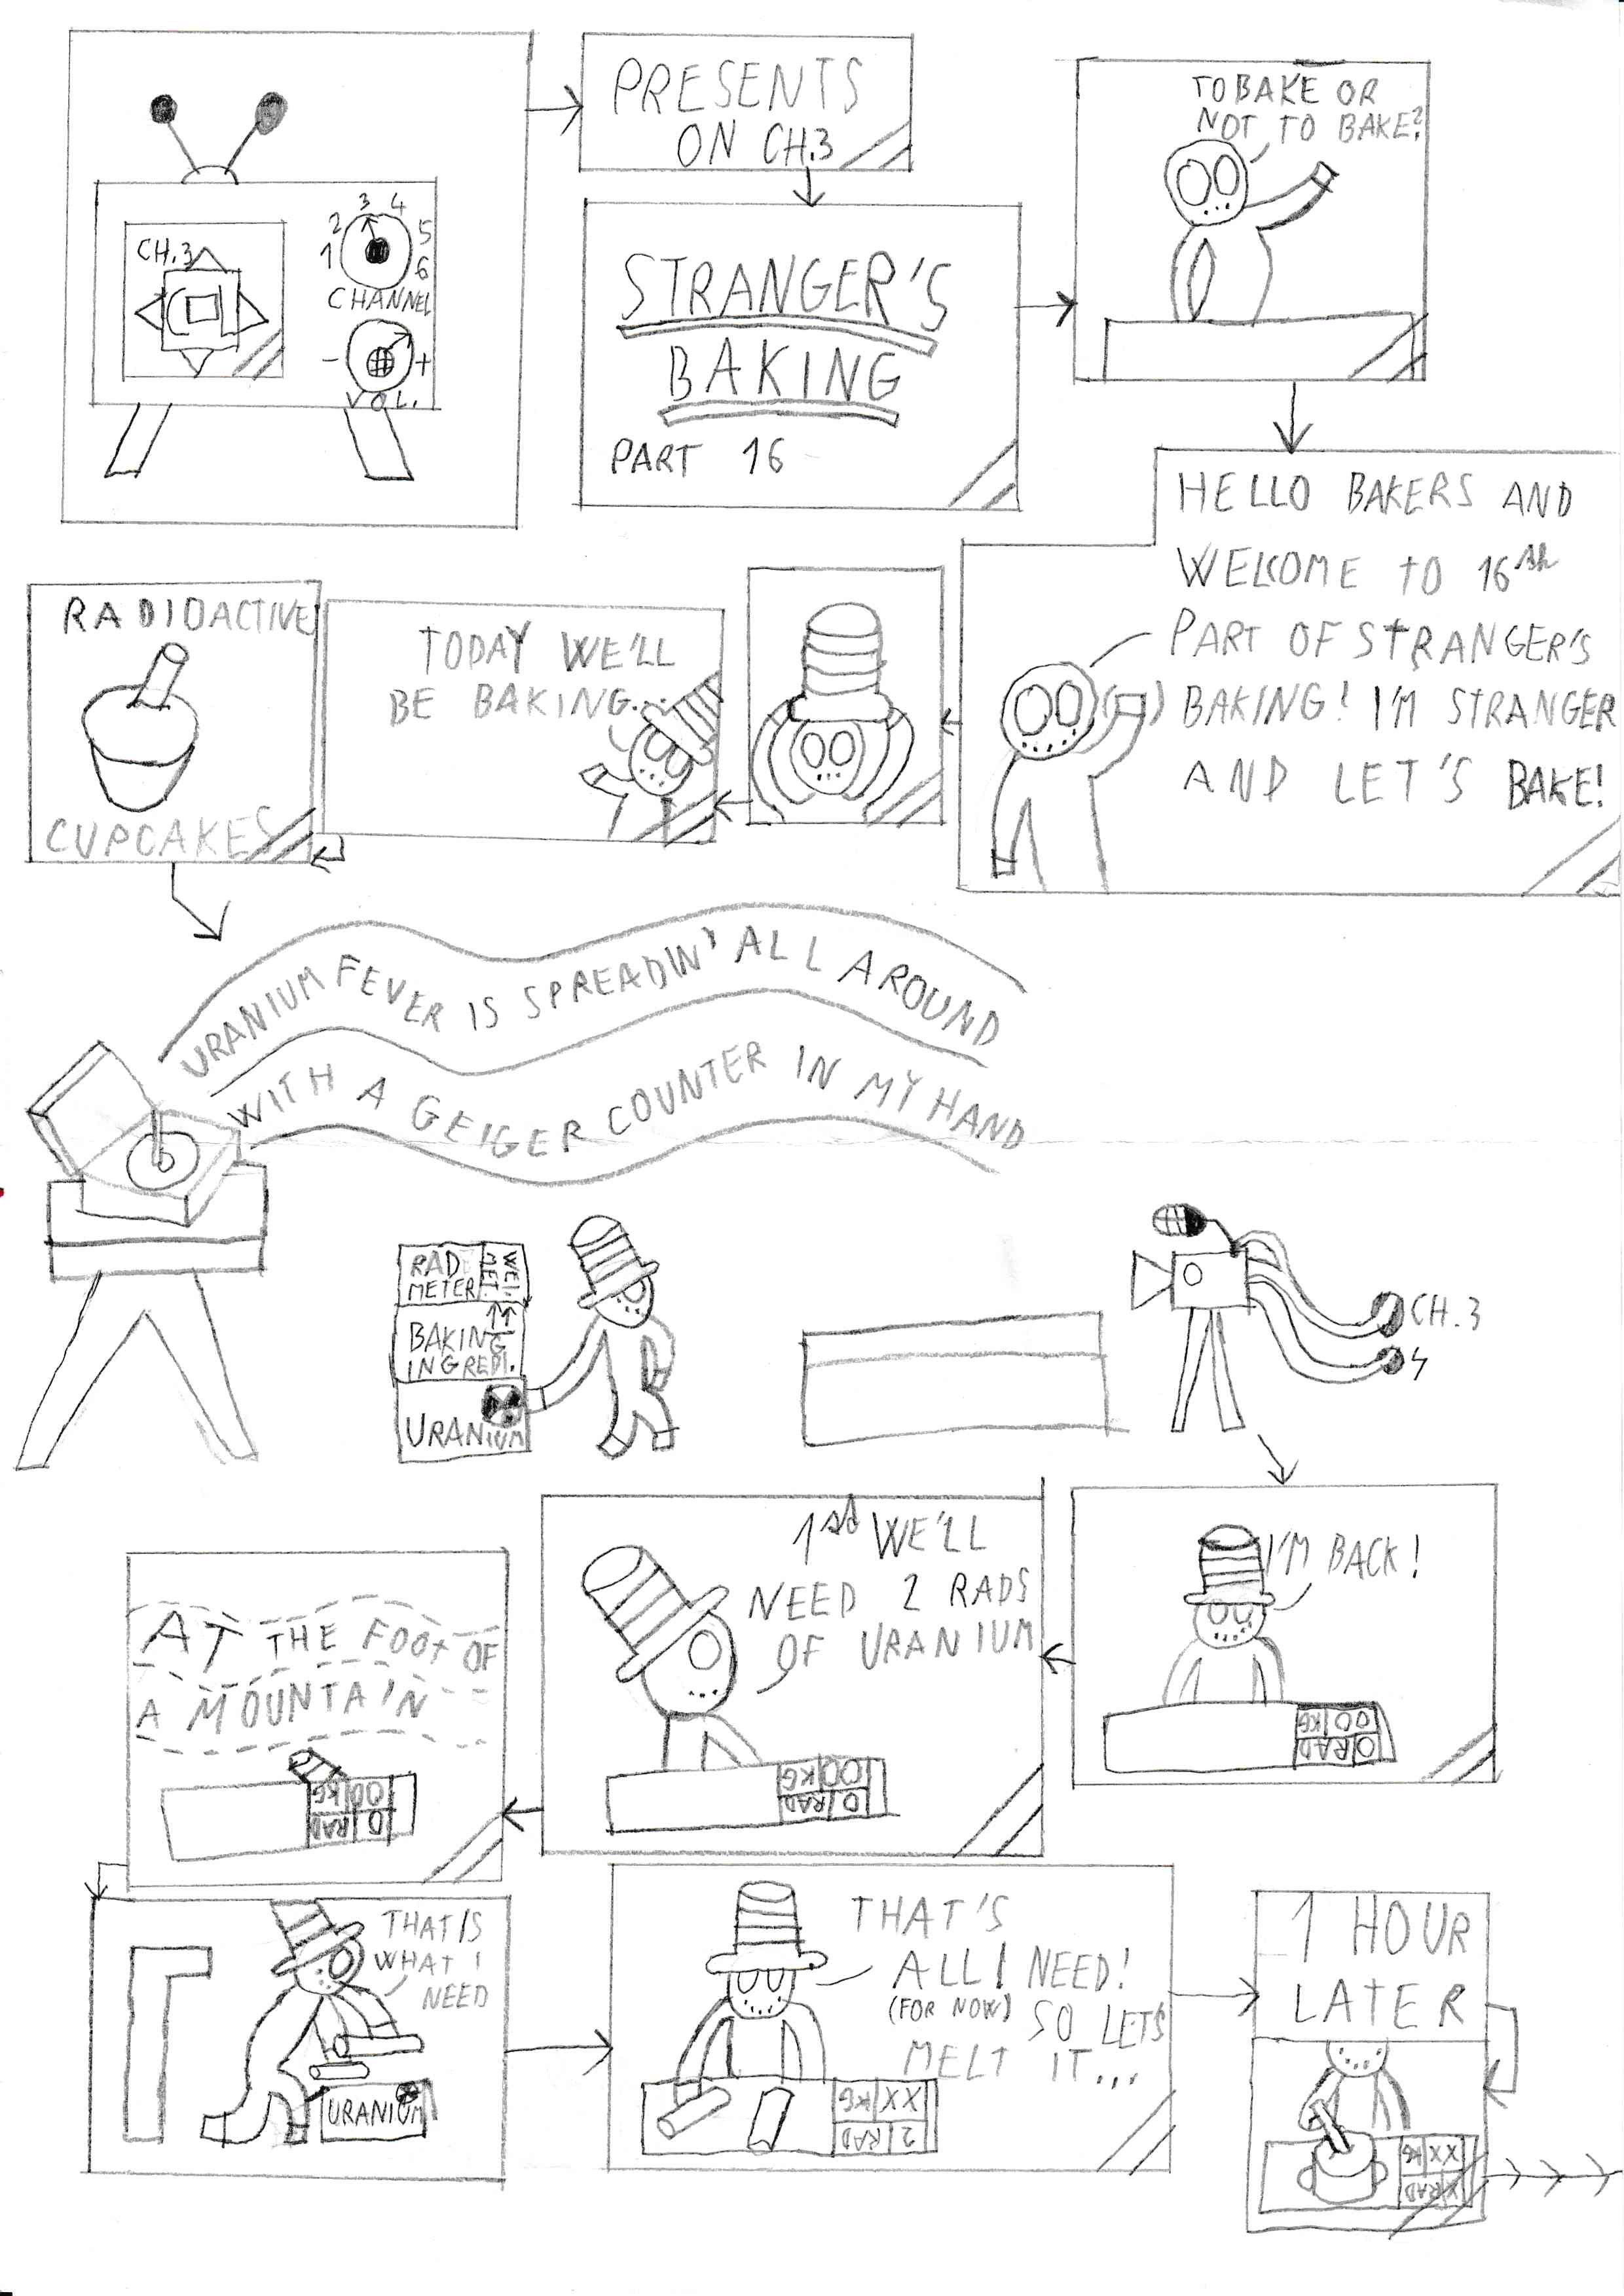 CH.3
1 2 3 4 5 6
CHANNEL
- +
VOL.
PRESENTS
ON CH.3
STRANGER'S
BAKING
PART 16
TO BAKE OR
NOT TO BAKE?
HELLO BAKERS AND
WELCOME TO 16th
PART OF STRANGER'S
BAKING! I'M STRANGER
AND LET'S BAKE!
TODAY WE'LL
BE BAKING...
RADIOACTIVE
CUPCAKES
URANIUM FEVER IS SPREADIN' ALL AROUND
WITH A GEIGER COUNTER IN MY HAND
RAD
METER
WEI.
MET.
BAKING
INGREDI.
URANIUM
CH.3
I'M BACK!
00 KG
0 RAD
1st WE'LL
NEED 2 RADS
OF URANIUM
00 KG
0 RAD
AT THE FOOT OF
A MOUNTAIN
00 KG
0 RAD
THAT IS
WHAT I
NEED
URANIUM
THAT'S
ALL I NEED!
(FOR NOW) SO LETS
MELT IT...
XX KG
2 RAD
1 HOUR
LATER
XX KG
X RAD